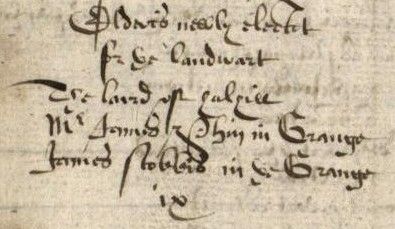 Elderis newly electit
for ye landwart
The laird of
Mr James in Grange
James in ye Grange
ix